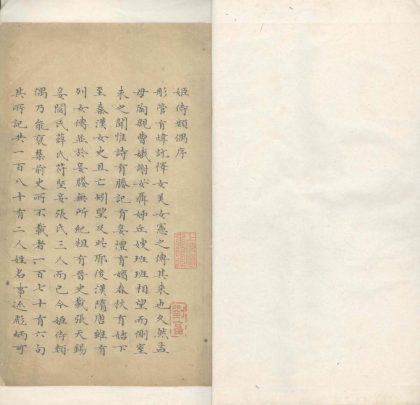 姬侍類偶序
彤管有煒說懌女美女憲之傳其來也久然孟
母陶親曹娥謝女齊姊丘嫂班班相望而側室
未之聞惟詩有媵記有妾禮有婦春秋有
至秦漢女史且亡劉望及終耶後漢隋唐雖有
列女傳並於妾媵無所紀粗有晉史載張天錫
妾閻氏薛氏苻堅妾張氏三人而已今姬侍類
偶乃能裒集前史所不載者一百七十有六句
其所記共一百八十有二人姓名事迹彪炳可